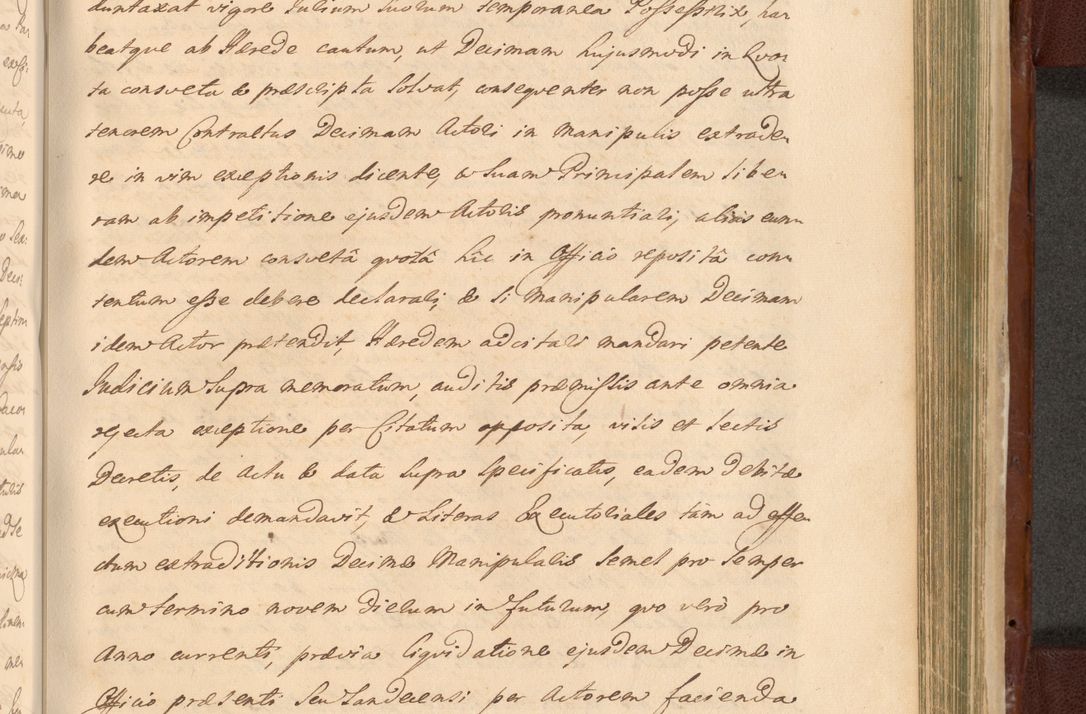 duntaxat vigore Iulium suorum temporanea Possessrix, har
beatque ab Hærede cautum, ut Decimam hujusmodi in Quo
ta consveta & præscripta solvat, consequenter non posse ultra
tenorem Contractus Decimam Actori in Manipulis extrade
re in vim exceptionis dicente, & Suam Principalem libe
ram ab impetitione ejusdem Actoris pronuntiari, alias eun
dem Actorem consvetâ quotâ hîc in Officio repositâ con
tentum esse debere declarari, & si Manipularem Decimam
idem Actor prætendit, Hæredem adcitari mandari petente
Iudicium supra memoratum, auditis præmissis ante omnia
rejecta exceptione per Citatum opposita, visis et lectis
Decretis, de Actu & data supra specificatis, eadem debitæ
executioni demandavit, & Literas Executoriales tàm ad effe
ctum extraditionis Decimæ Manipularis semel pro semper
cum termino novem dierum in futurum, quo verò pro
Anno currenti, prævia liquidatione ejusdem Decimæ in
Officio præsenti seu Sandecensi per Actorem facienda